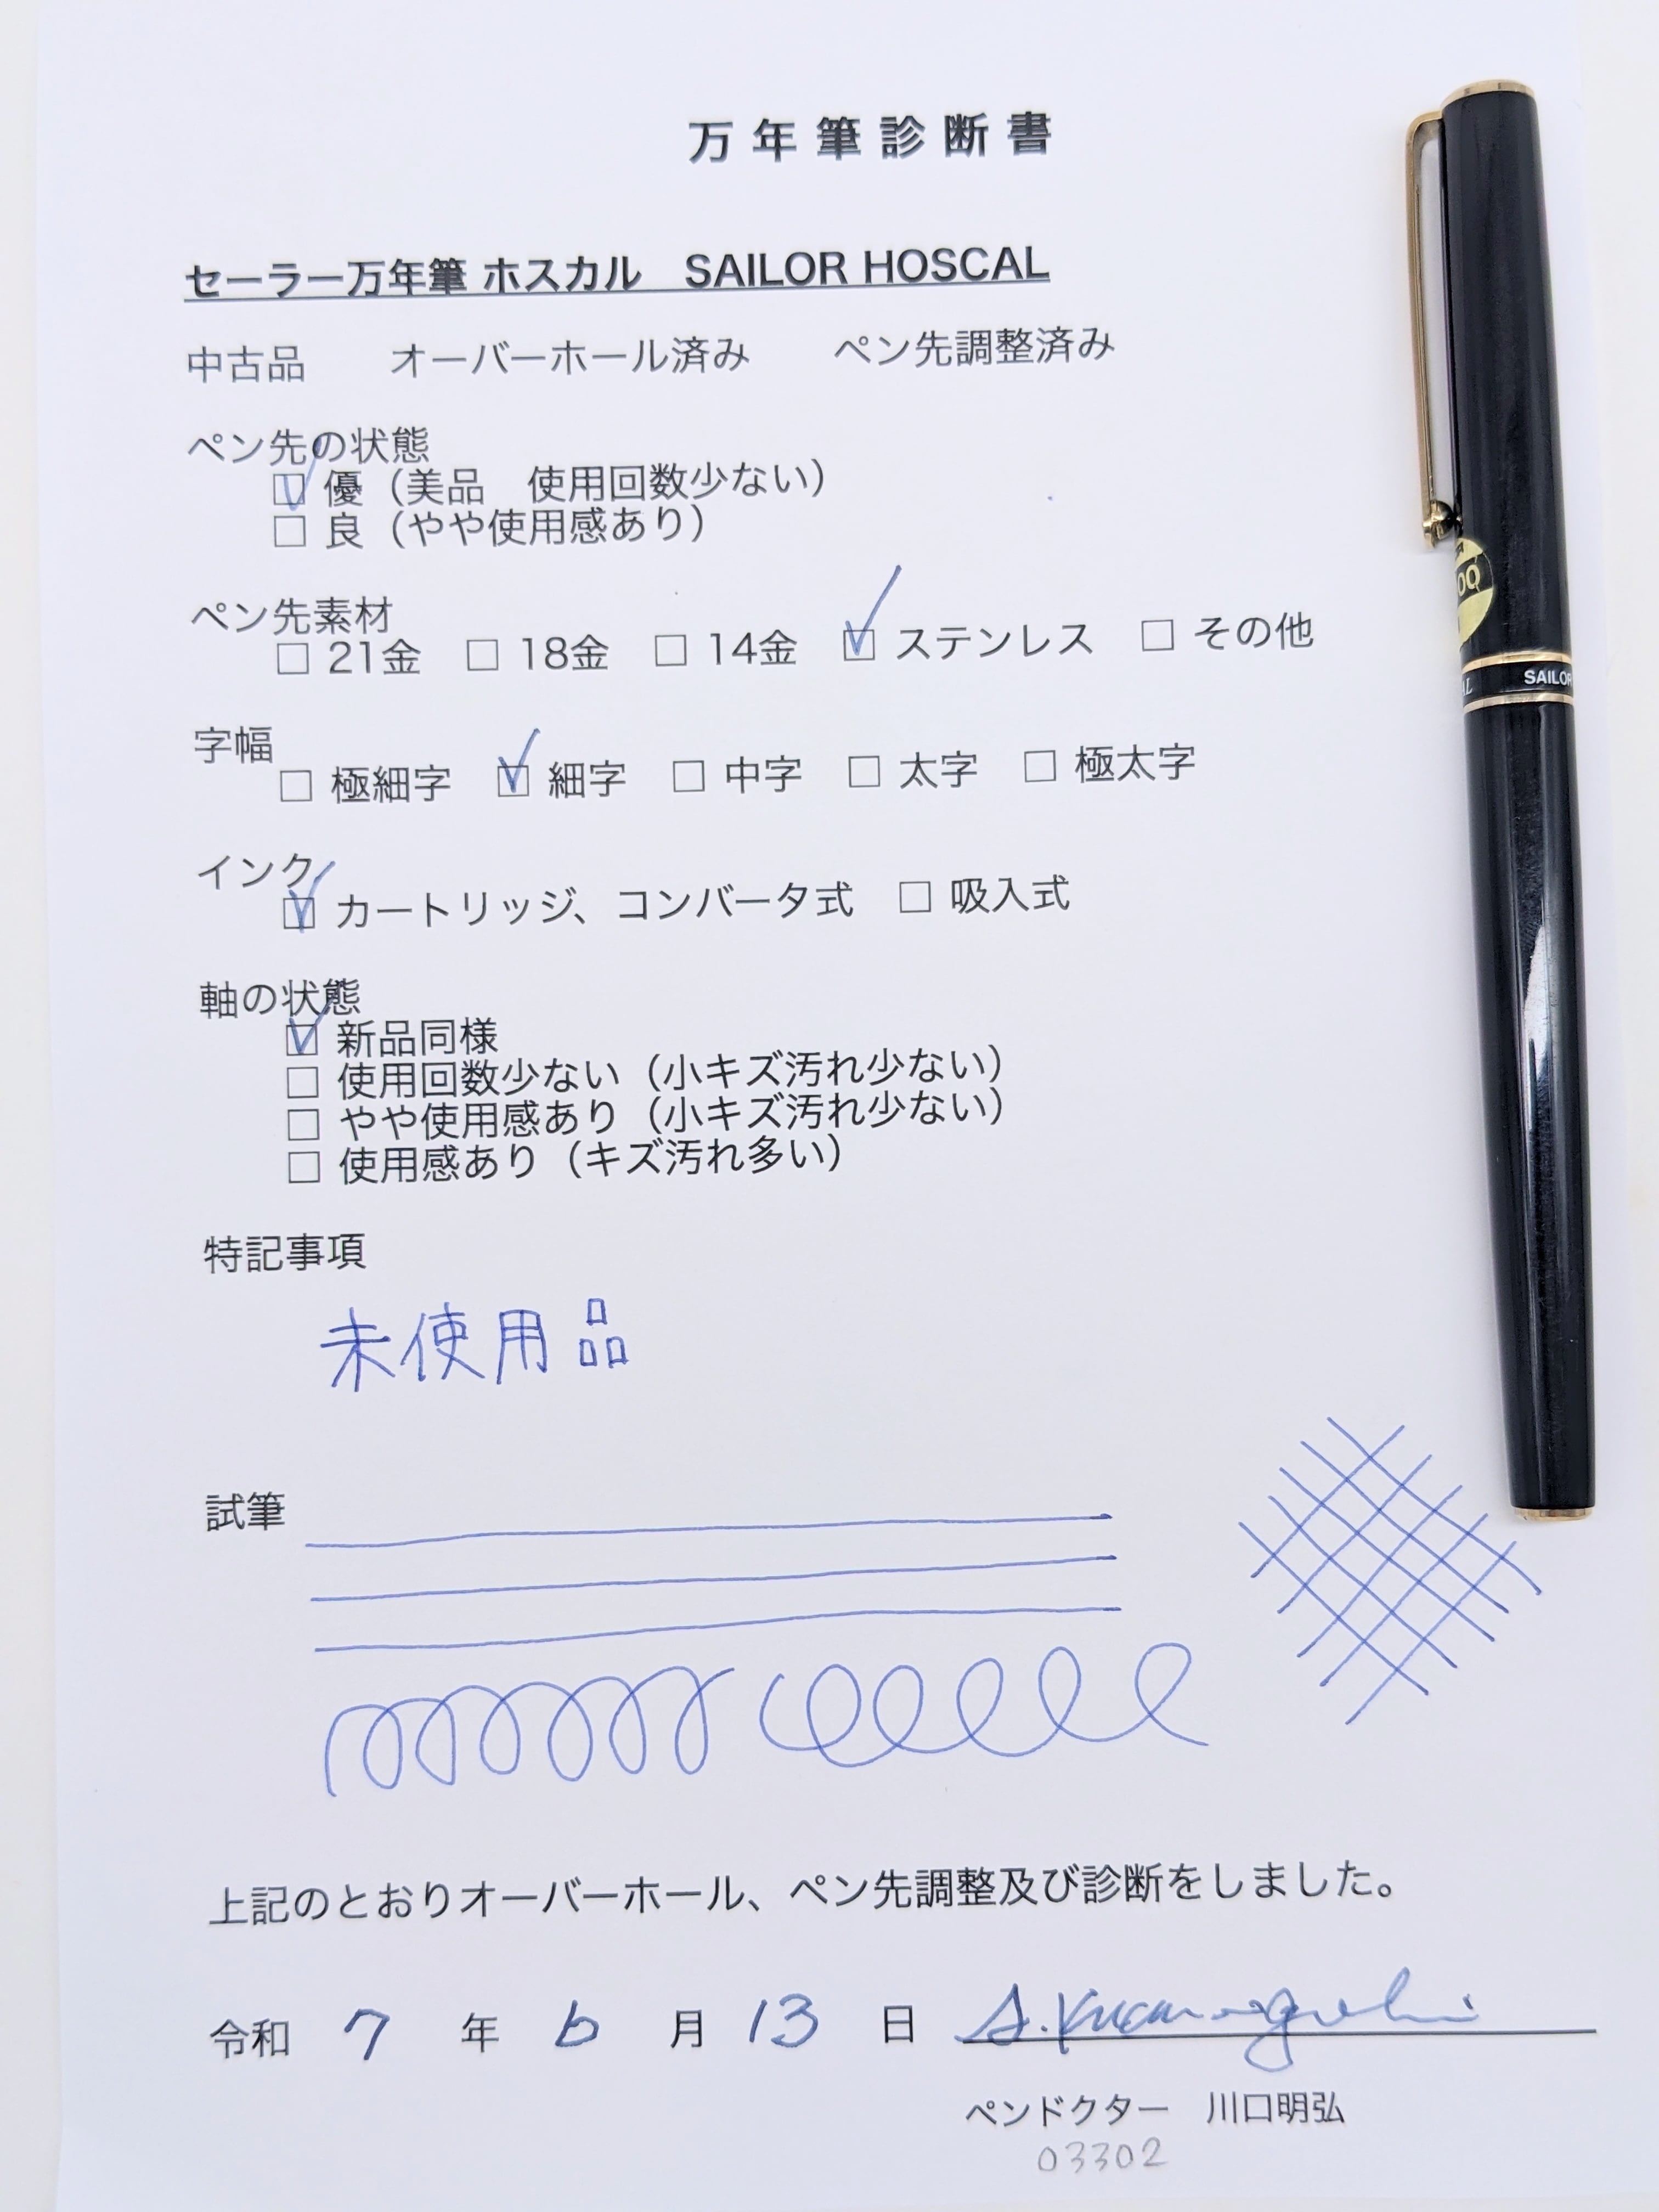 万年筆診断書
セーラー万年筆 ホスカル　SAILOR HOSCAL
中古品　　オーバーホール済み　　ペン先調整済み
ペン先の状態
☑ 優（美品　使用回数少ない）
☐ 良（やや使用感あり）
ペン先素材
☐ 21金　☐ 18金　☐ 14金　☑ ステンレス　☐ その他
字幅
☐ 極細字　☑ 細字　☐ 中字　☐ 太字　☐ 極太字
インク
☑ カートリッジ、コンバータ式　☐ 吸入式
軸の状態
☑ 新品同様
☐ 使用回数少ない（小キズ汚れ少ない）
☐ やや使用感あり（小キズ汚れ少ない）
☐ 使用感あり（キズ汚れ多い）
特記事項
未使用品
試筆
上記のとおりオーバーホール、ペン先調整及び診断をしました。
令和 7 年 6 月 13 日
ペンドクター　川口明弘
03302
SAILOR